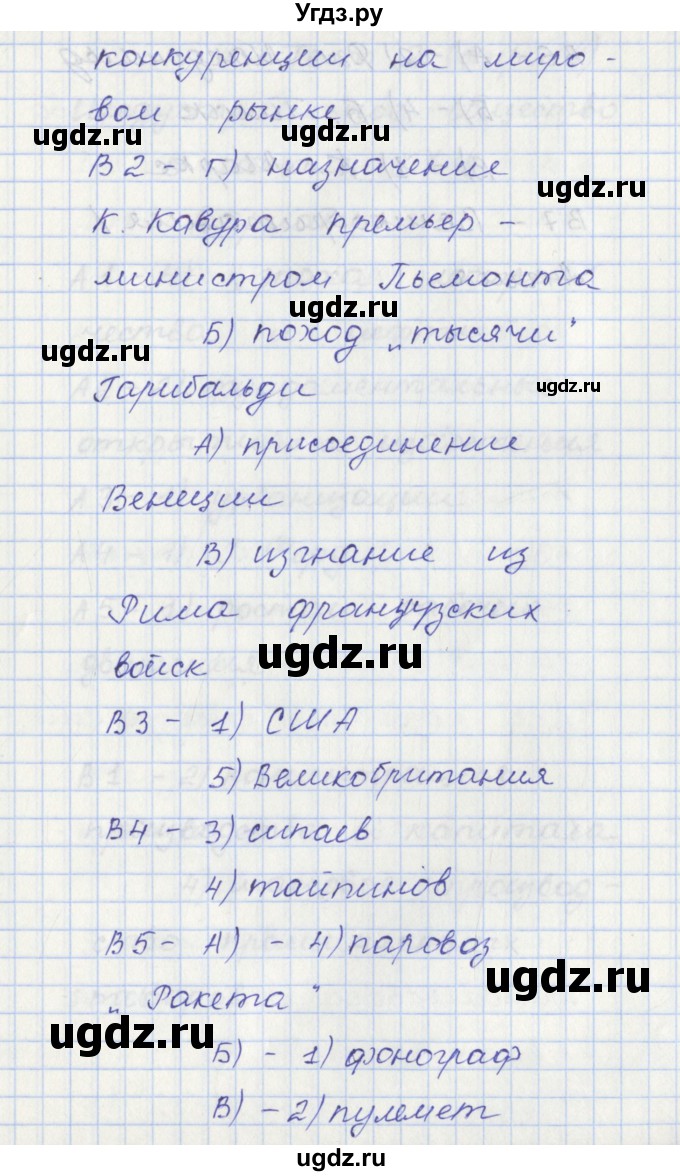 Угдз.ру
конкуренции на миро-
вом рынке
В2 - г) назначение
К. Кавура премьер -
министром Пьемонта
Б) поход „тысячи"
Гарибальди
А) присоединение
Венеции
В) изгнание из
Рима французских
войск
В3 - 1) США
5) Великобритания
В4 - 3) сипаев
4) тайпинов
В5 - А) - 4) паровоз
„Ракета"
Б) - 1) фонограф
В) - 2) пулемет
ugdz.ru
ugdz.ru
ugdz.ru
ugdz.ru
ugdz.ru
ugdz.ru
ugdz.ru
ugdz.ru
ugdz.ru
ugdz.ru
ugdz.ru